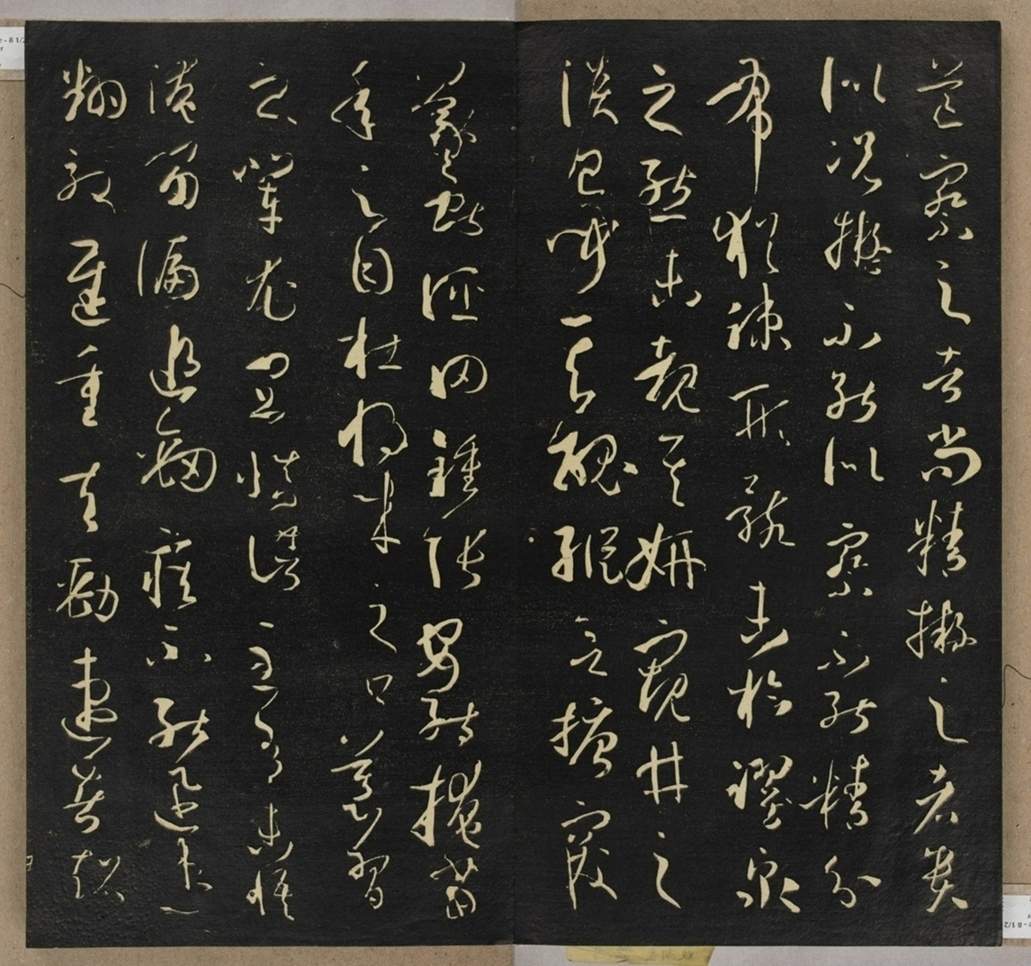 蓋察之者尚精擬之者貴
似況擬不能似察不能精分
布猶疎形骸未檢躍泉
之態未覩其妍窺井之
談已聞其醜縱欲搪突
羲獻誣罔鍾張安能掩當
年之目杜將來之口慕習
之輩尤宜慎諸至有未悟
淹留偏追勁疾不能迅速
翻效遲重夫勁速者超